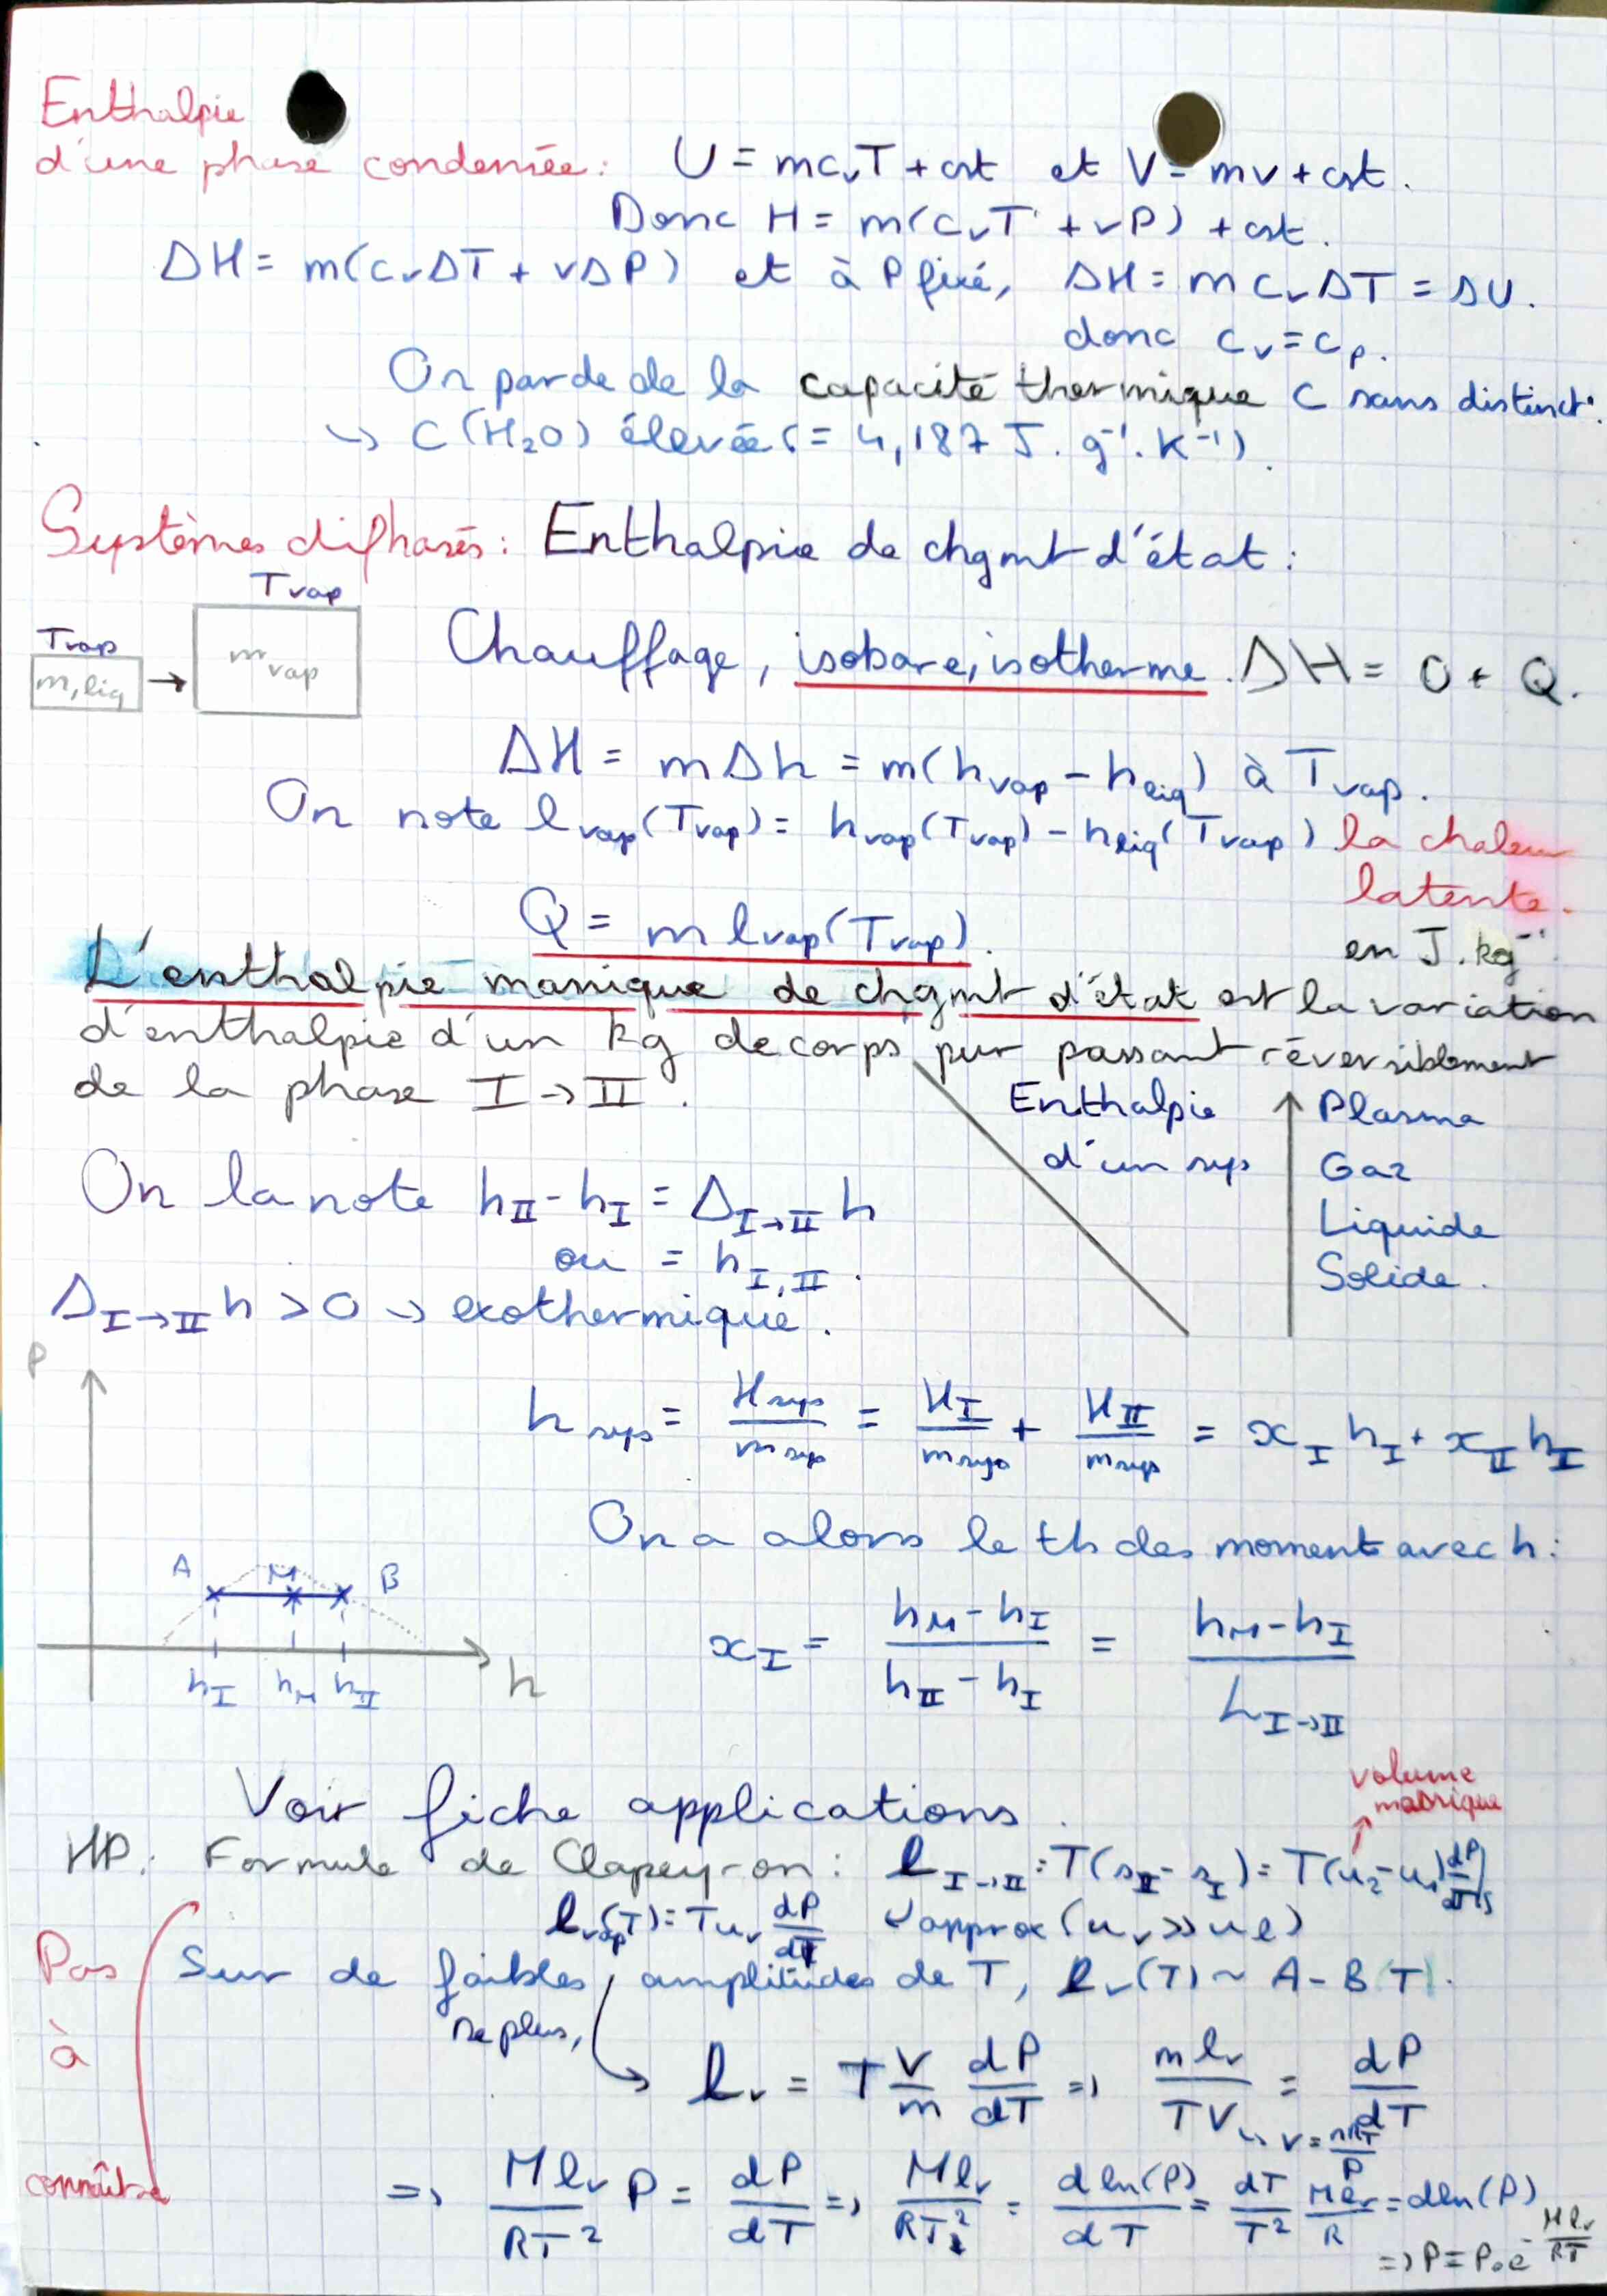 Enthalpie
d'une phase condensée : U = mc_vT + cst et V = mv + cst.
Donc H = m(c_vT + vP) + cst.
ΔH = m(c_vΔT + vΔP) et à P fixé, ΔH = mc_vΔT = ΔU.
donc c_v = c_p.
On parde de la capacité thermique C sans distinct°.
↪ C(H₂O) élevée (= 4,187 J.g⁻¹.K⁻¹).
Systèmes diphasés : Enthalpie de chgmt d'état :
T_vap
T_vap
m, liq → m_vap
Chauffage, isobare, isotherme. ΔH = 0 + Q.
ΔH = mΔh = m(h_vap - h_liq) à T_vap.
On note l_vap(T_vap) = h_vap(T_vap) - h_liq(T_vap) la chaleur
latente.
en J.kg⁻¹.
Q = m l_vap(T_vap).
L'enthalpie massique de chgmt d'état est la variation
d'enthalpie d'un kg de corps pur passant réversiblement
de la phase I → II.
Enthalpie
d'un sys
↑
Plasma
Gaz
Liquide
Solide.
On la note h_II - h_I = Δ_I→II h
ou = h_I,II.
Δ_I→II h > 0 → exothermique.
P
A M B
h_I h_M h_II h
h_sys = H_sys/m_sys = H_I/m_sys + H_II/m_sys = x_I h_I + x_II h_I
On a alors le th des moment avec h :
x_I = (h_M - h_I)/(h_II - h_I) = (h_M - h_I)/L_I→II
Voir fiche applications.
volume
massique
HP : Formule de Clapeyron : l_I→II = T(s_II - s_I) = T(u₂ - u₁)dP/dT)s
l_vap(T) = Tu_v dP/dT ↲ approx (u_v >> u_l)
Pas
à
connaître
Sur de faibles amplitudes de T, l_v(T) ~ A - B(T).
De plus,
l_v = T V/m dP/dT ⇒ ml_v/TV = dP/dT
↪ V = nRT/P
⇒ Ml_v/RT² P = dP/dT ⇒ Ml_v/RT² = dln(P)/dT = dT/T² Ml_v/R = dln(P)
⇒ P = P₀e^(-Ml_v/RT)